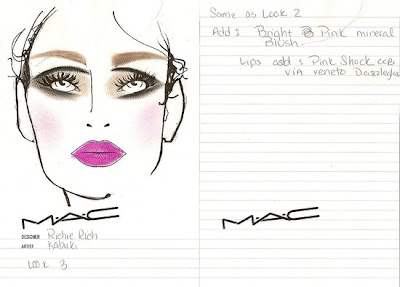 M·A·C
DESIGNER Richie Rich
ARTIST Kabuki
Look 3
Same as Look 2
Add: Bright Pink mineral
Blush.
Lips add: Pink Shock CCB
via veneto Dazzleglass
M·A·C